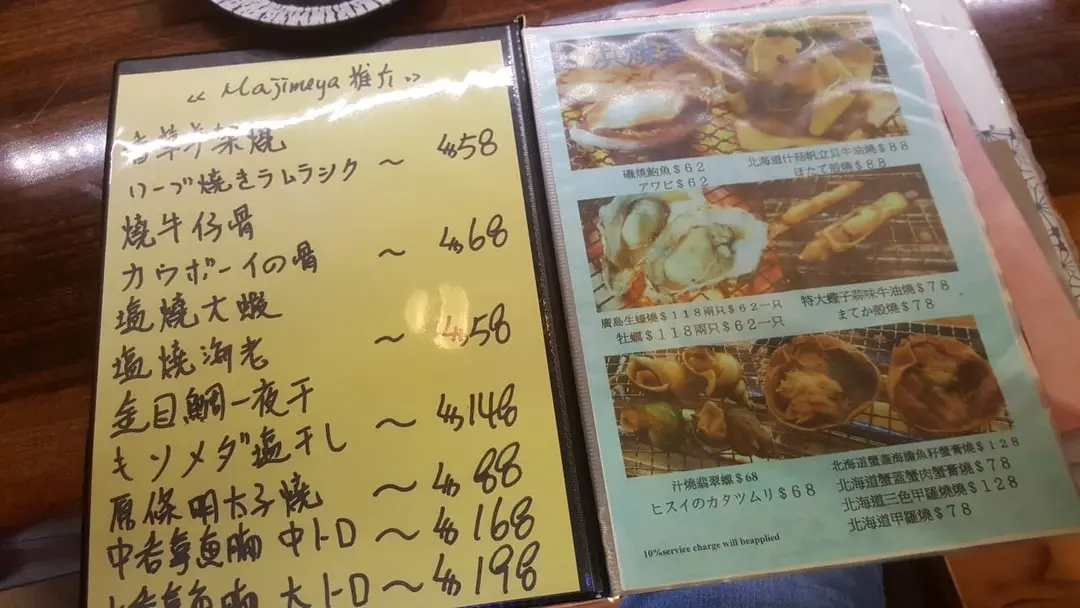 《 Majimeya 推介 》
香草羊架燒
ローブ焼きラムラシク ～ $58
燒牛仔骨
カウボーイの骨 ～ $68
塩燒大蝦
塩燒海老 ～ $58
金目鯛一夜干
キソメダ塩干し ～ $148
原條明太子燒 ～ $88
中吞拿魚腩 中トロ ～ $168
吞拿魚腩 大トロ ～ $198
磯燒鮑魚$62
アワビ$62
北海道什菇帆立貝牛油燒$88
ほたて殻燒$88
廣島生蠔燒$118兩只$62一只
牡蠣$118兩只$62一只
特大蟶子蒜味牛油燒$78
まてか殻燒$78
汁燒翡翠螺$68
ヒスイのカタツムリ$68
北海道蟹蓋海膽魚籽蟹膏燒$128
北海道蟹蓋蟹肉蟹膏燒$78
北海道三色甲羅燒燒$128
北海道甲羅燒$78
10%service charge will beapplied